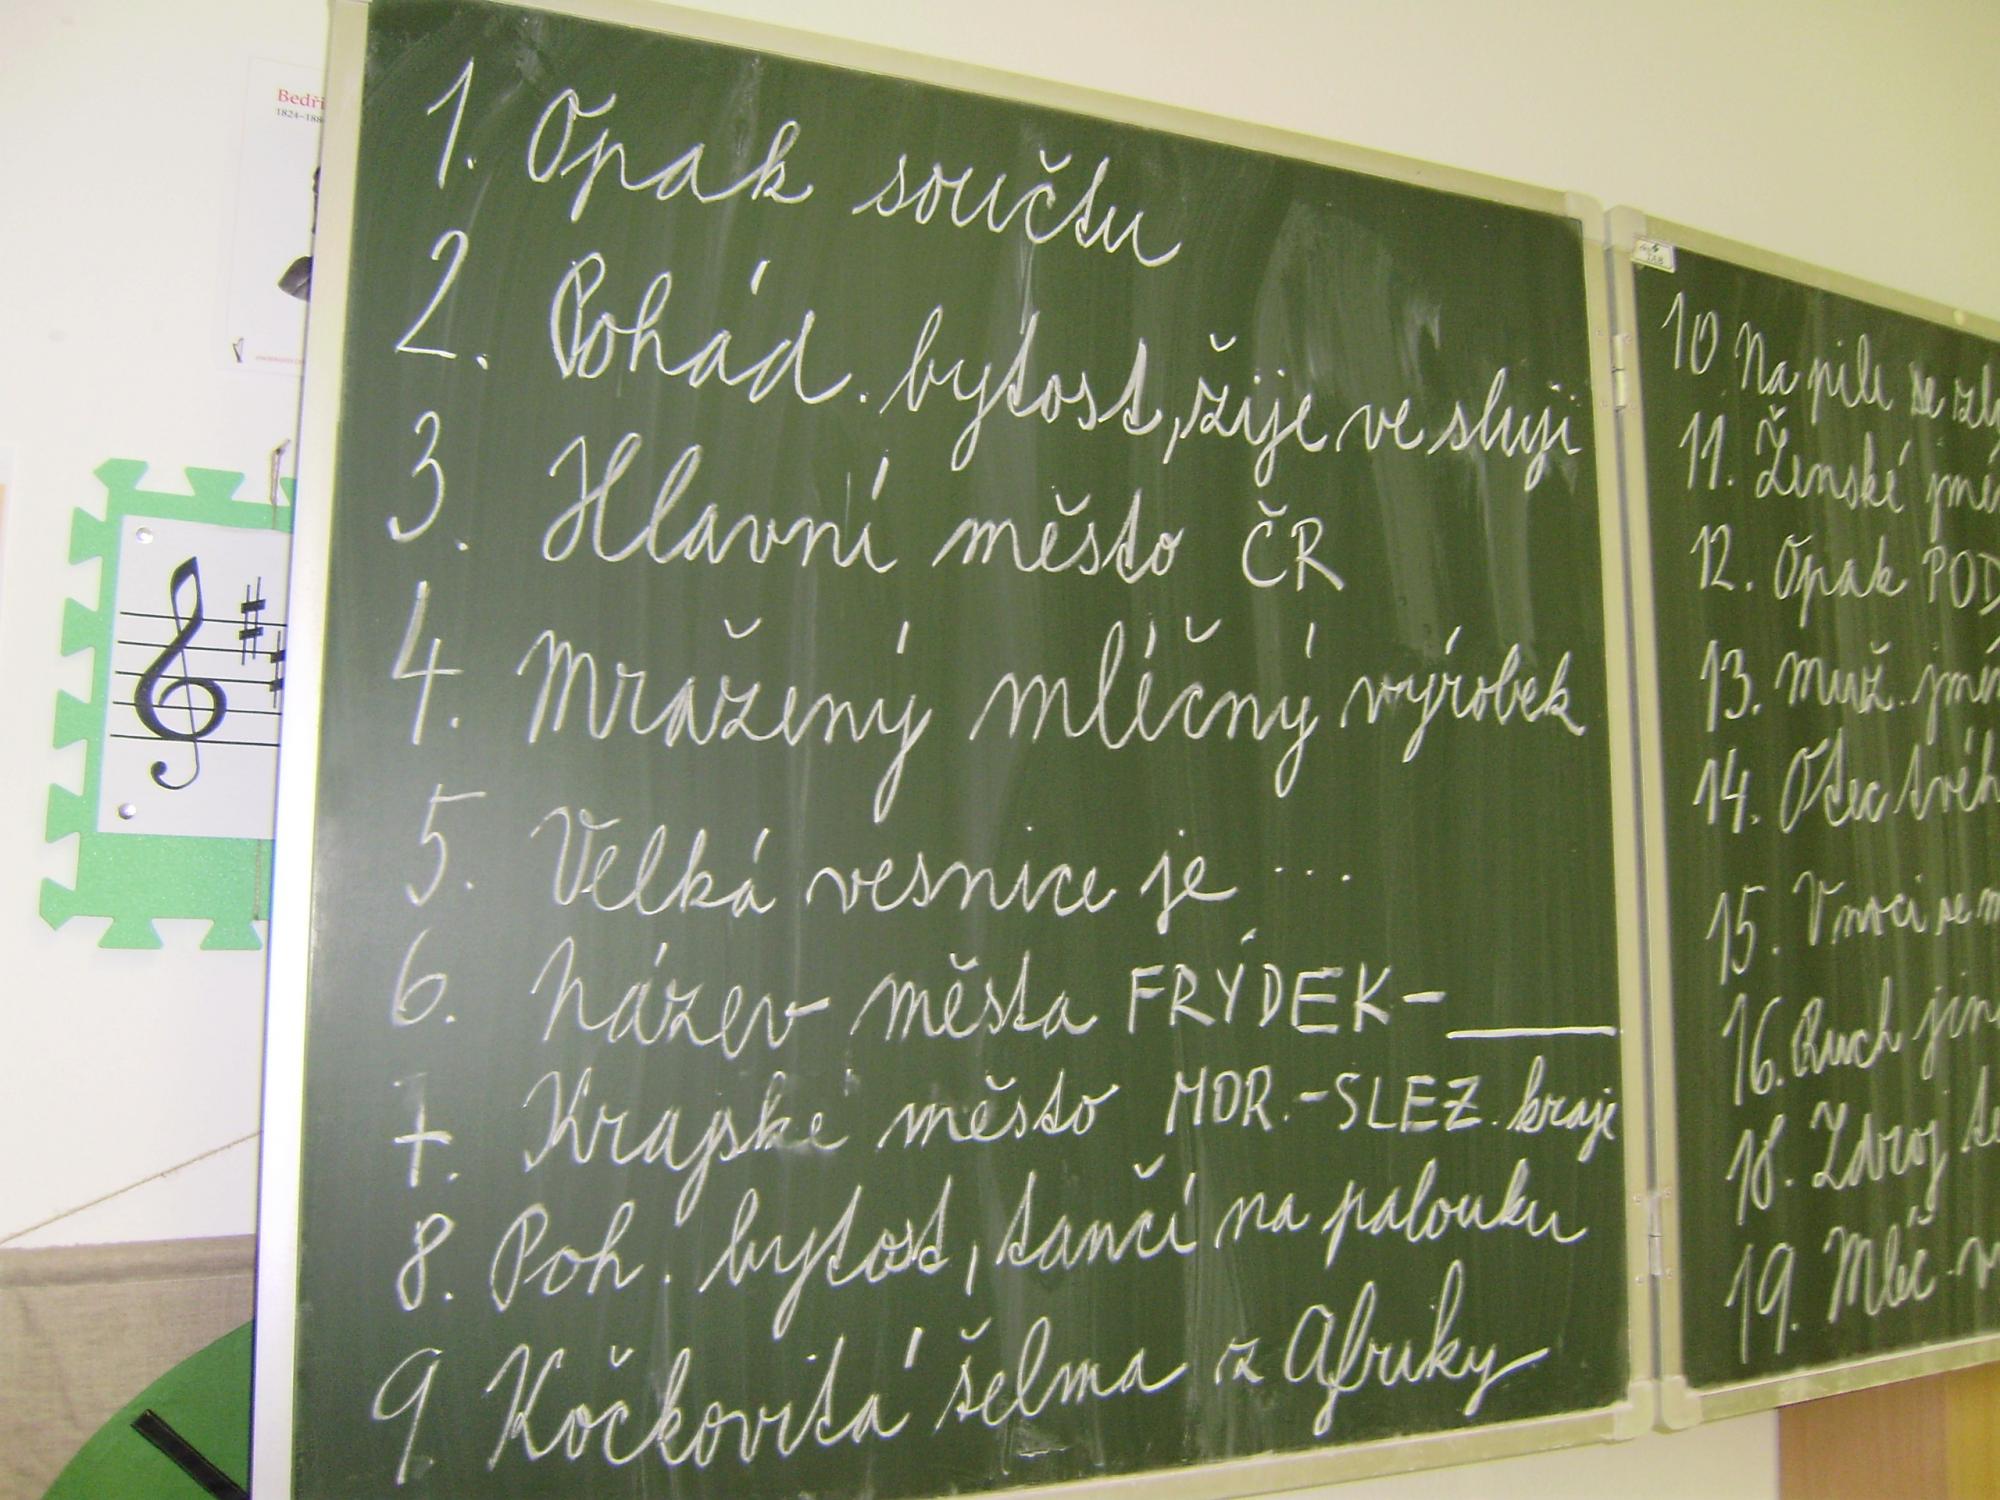 Bedři
1824–188
1. Opak součtu
2. Pohád. bytost, žije ve sluji
3. Hlavní město ČR
4. Mražený mléčný výrobek
5. Velká vesnice je ...
6. Název města FRÝDEK-____
7. Krajské město MOR.-SLEZ. kraje
8. Poh. bytost, tančí na palouku
9. Kočkovitá šelma z Afriky
10. Na pile se
11. Ženské jmé
12. Opak POD
13. Muž. jmén
14. Otec tvéh
15. V noci se
16. Ruch jin
18. Zdroj
19. Mléč. v